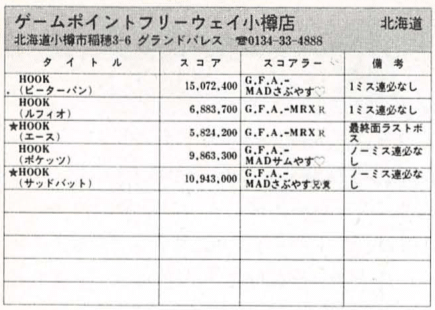 ゲームポイントフリーウェイ小樽店 北海道
北海道小樽市稲穂3-6 グランドパレス ☎0134-33-4888
タイトル スコア スコアラー 備考
HOOK
(ピーターパン) 15,072,400 G.F.A.-
MADさぶやす♡ 1ミス連必なし
HOOK
(ルフィオ) 6,883,700 G.F.A.-MRX R 1ミス連必なし
★HOOK
(エース) 5,824,200 G.F.A.-MRX R 最終面ラストボ
ス
HOOK
(ポケッツ) 9,863,300 G.F.A.-
MADサムやす♡ ノーミス連必な
し
★HOOK
(サッドバット) 10,943,000 G.F.A.-
MADさぶやす兄貴 ノーミス連必な
し